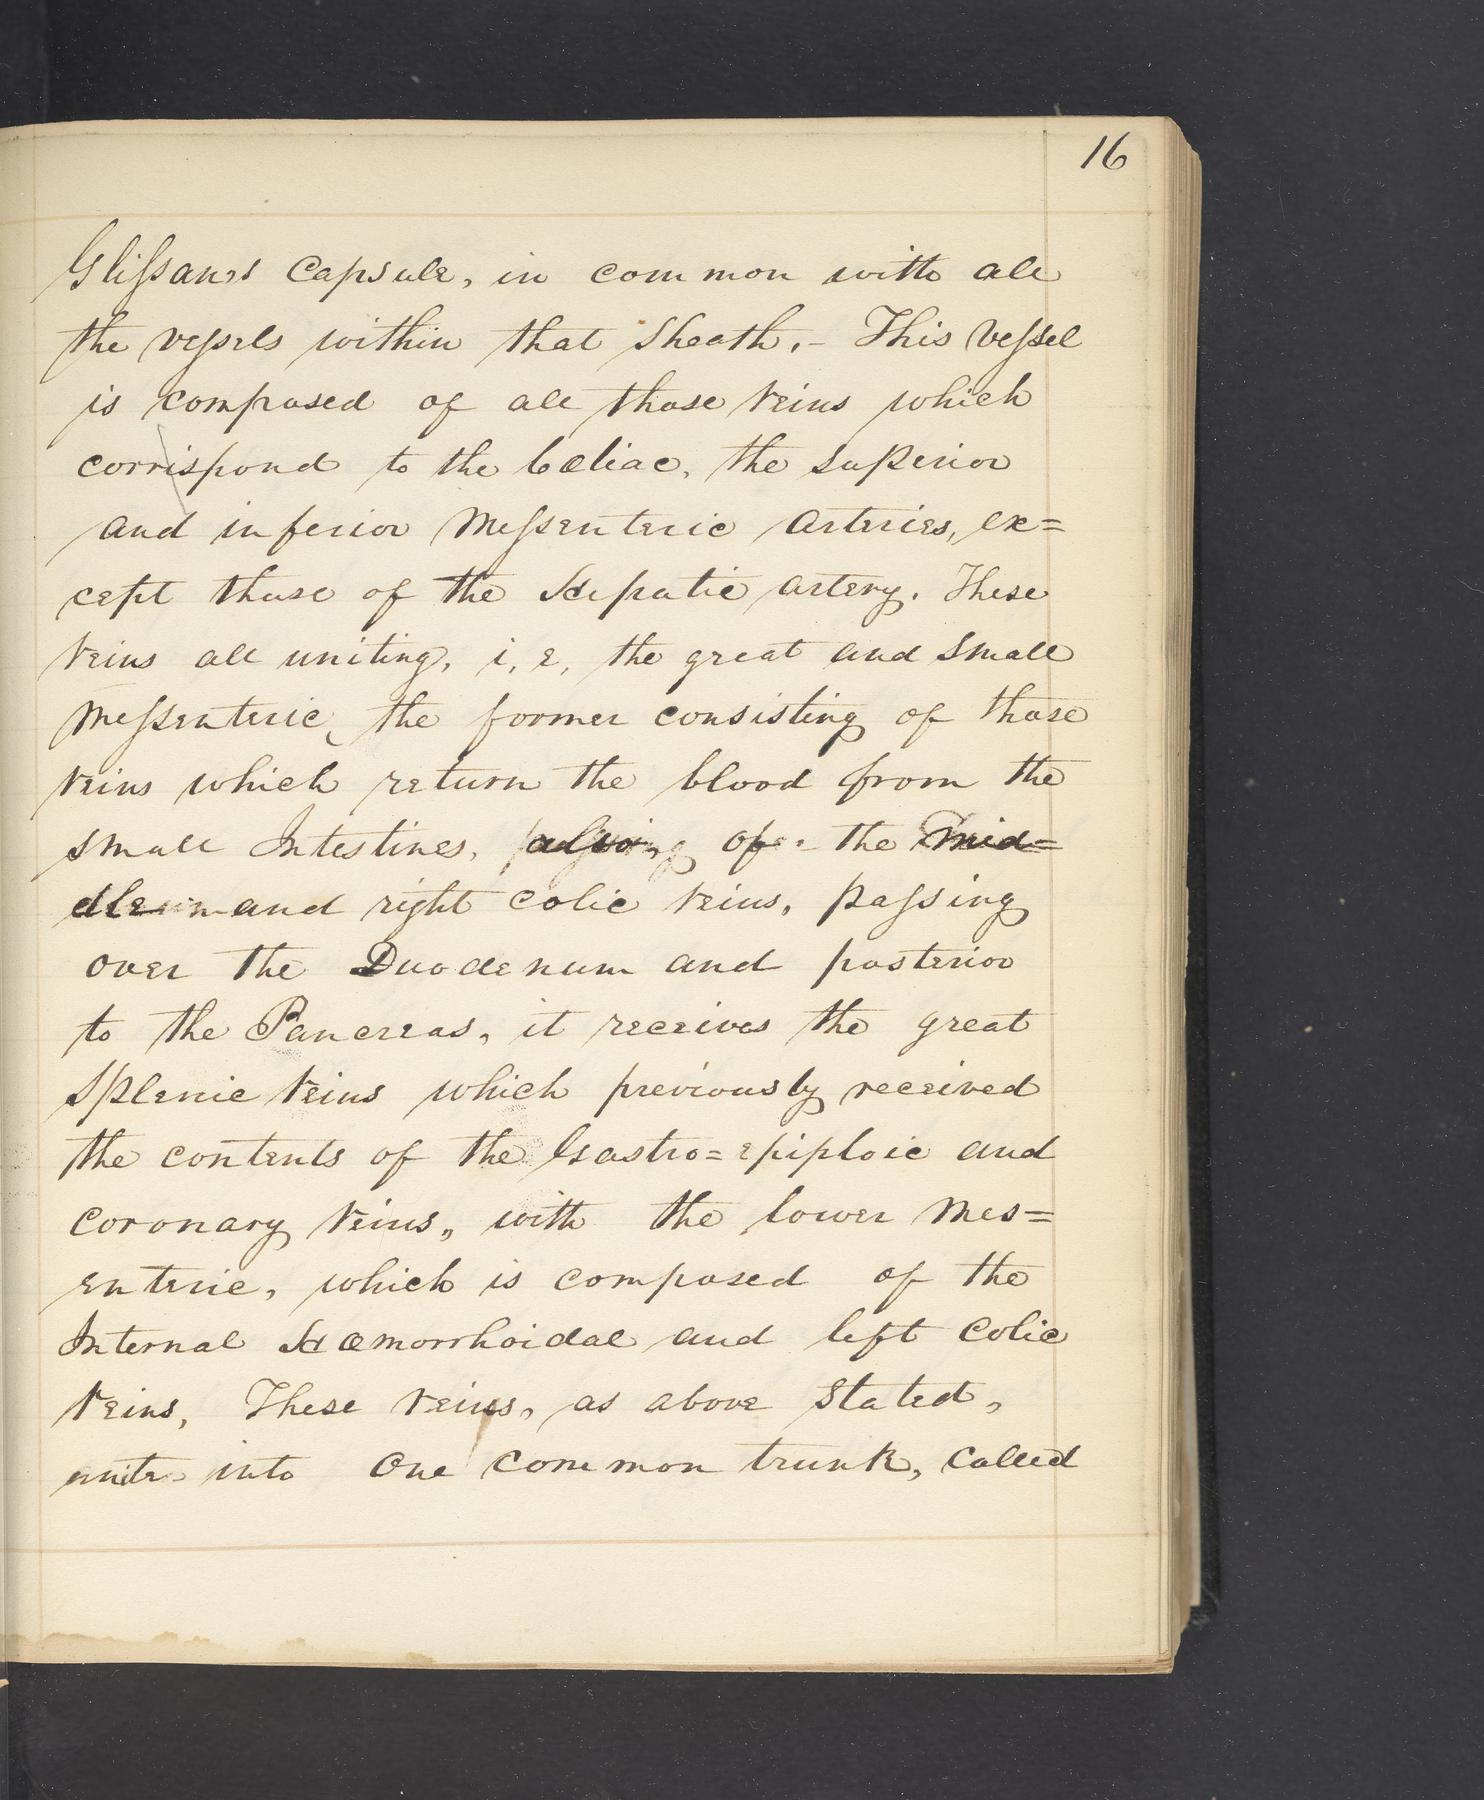 16
Glissan's Capsule, in common with all
the vessels within that Sheath. - This Vessel
is composed of all those veins which
corrispond to the Cœliac, the superior
and inferior Messenteric arteries, ex=
cept those of the Hepatic artery. These
veins all uniting, i, e, the great and small
Messenteric, the former consisting of those
veins which return the blood from the
small Intestines, also of the mid=
dle and right colic veins, passing
over the Duodenum and posterior
to the Pancreas, it receives the great
Splenic veins which previously received
the contents of the Gastro=epiploic and
coronary veins, with the lower Mes=
enteric, which is composed of the
Internal Hæmorrhoidal and left Colic
veins, These veins, as above stated,
unite into one common trunk, called